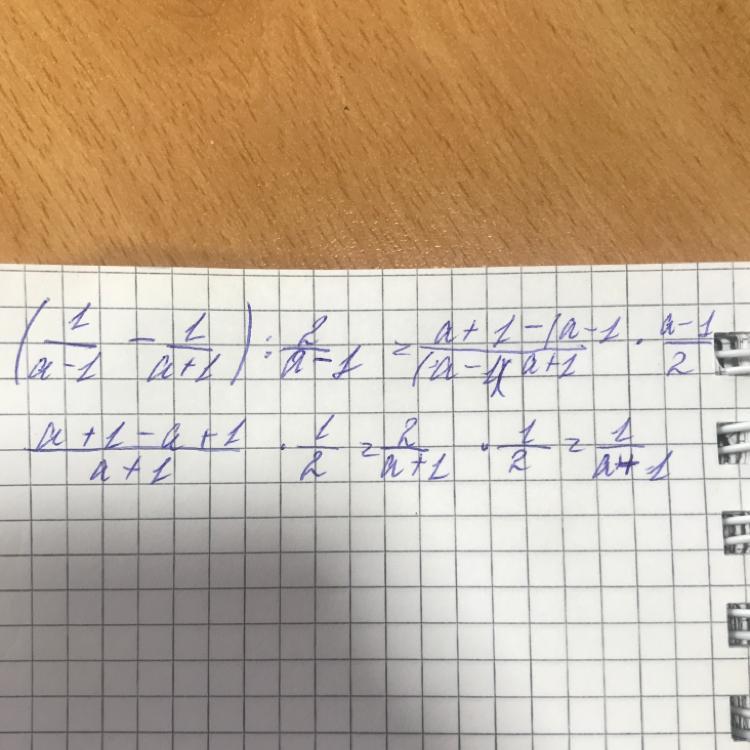 (1/(a-1) - 1/(a+1)) : 2/(a-1) = (a+1-(a-1)/((a-1)(a+1) · (a-1)/2
(a+1-a+1)/(a+1) · 1/2 = 2/(a+1) · 1/2 = 1/(a+1)